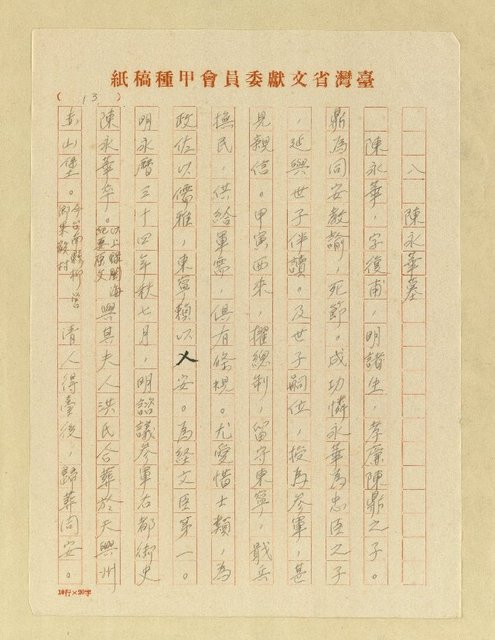 臺灣省文獻委員會甲種稿紙
(13)
八 陳永華墓
陳永華，字復甫，明諸生，孝廉陳鼎之子。
鼎為同安教諭，死節。成功憐永華為忠臣之子
，延與世子伴讀。及世子嗣位，授為參軍，甚
見親信。甲寅西來，擢總制，留守東寧，戢兵
撫民，供給軍需，俱有條規。尤愛惜士類，為
政佐以儒雅，東寧賴以乂安。為經文臣第一。
明永曆三十四年秋七月，明諮議參軍右都御史
陳永華卒。以上錄閩海紀要原文與其夫人洪氏合葬於天興州
赤山堡。今台南縣柳營鄉果毅村清人得臺後，歸葬同安。
10行×20字